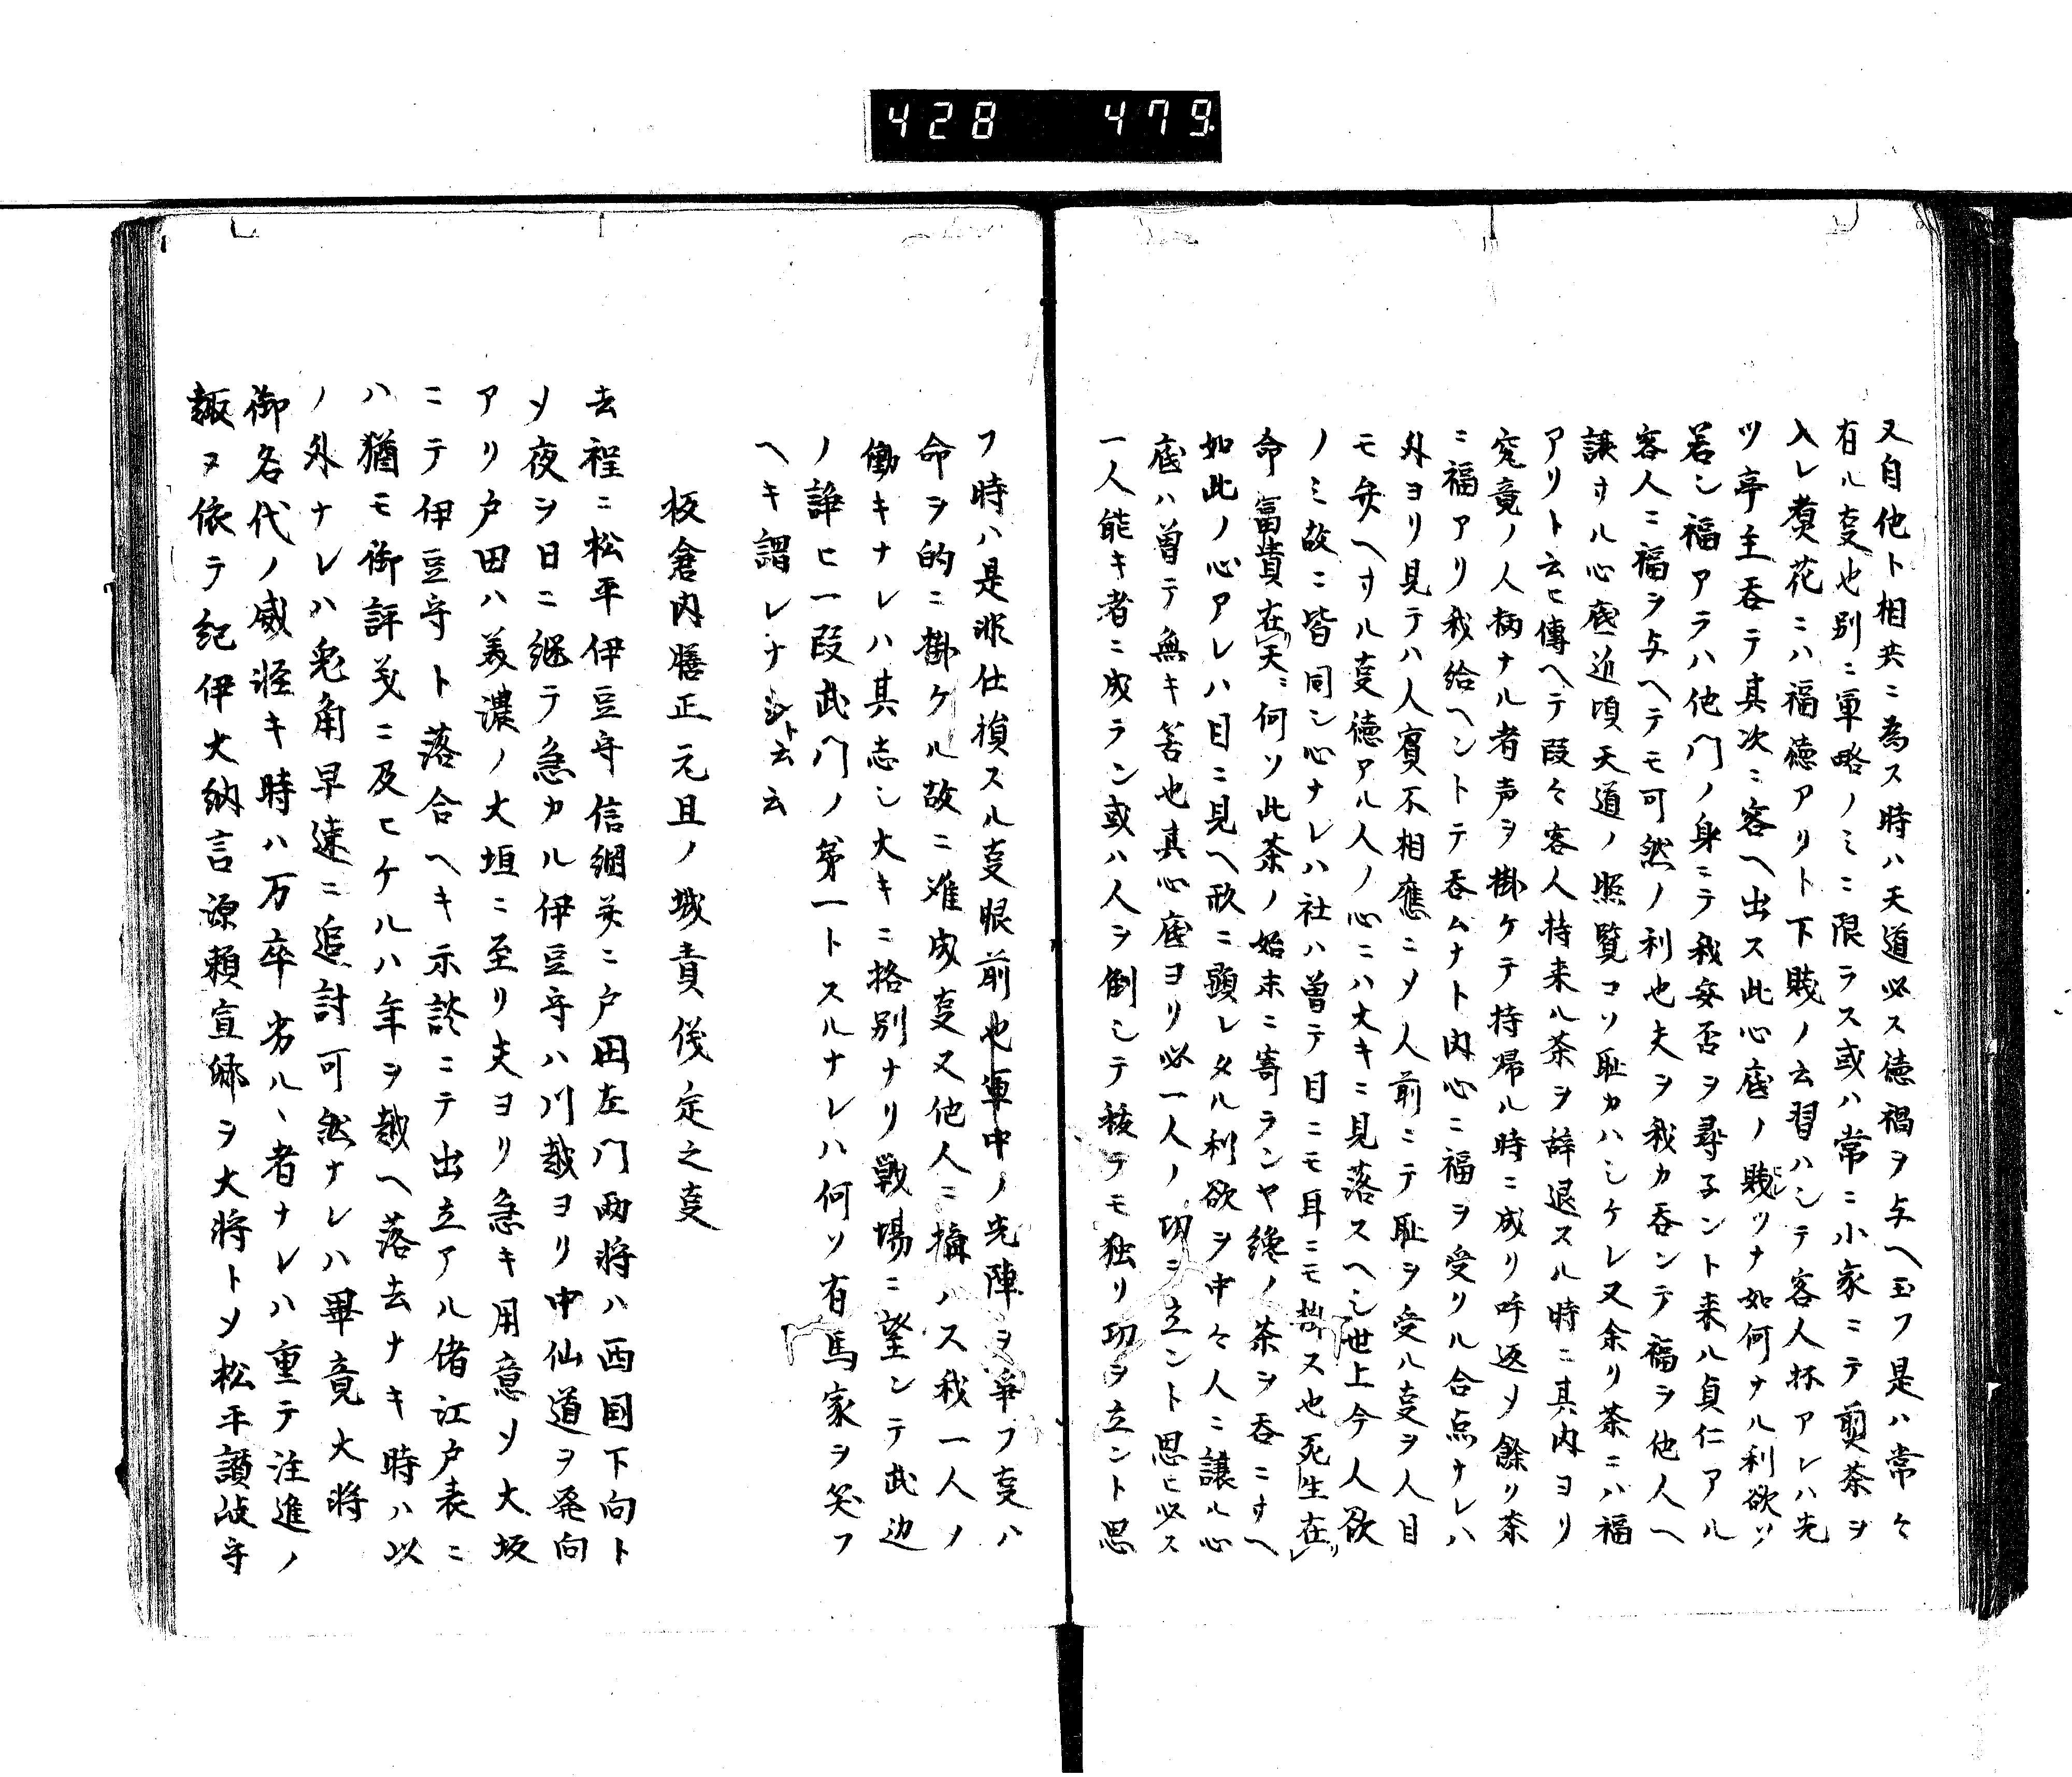 428 479
又自他ト相共ニ為ス時ハ天道必ス徳福ヲ与ヘ玉フ是ハ常々
有ル叓也別ニ軍略ノミニ限ラス或ハ常ニ小家ニテ煎茶ヲ
入レ煑花ニハ福徳アリト下賎ノ云習ハシテ客人抔アレハ先
ツ亭主呑テ其次ニ客ヘ出ス此心底ノ賎シサ如何ナル利欲ソ
若シ福アラハ他門ノ身ニテ我安否ヲ尋子ント来ル貞仁アル
客人ニ福ヲ与ヘテモ可然ノ利也夫ヲ我カ呑ンテ福ヲ他人ヘ
譲サル心底近頃天道ノ照覧コソ恥カハシケレ又余リ茶ニハ福
アリト云ヒ傳ヘテ段々客人持来ル茶ヲ辞退スル時ニ其内ヨリ
究竟ノ人柄ナル者声ヲ掛ケテ持帰ル時ニ成リ呼返ソ餘リ茶
ニ福アリ我給ヘントテ呑ムナト内心ニ福ヲ受リル合点ナレハ
外ヨリ見テハ人賓不相應ニソ人前ニテ恥ヲ受ル叓ヲ人目
モ弁ヘサル叓徳アル人ノ心ニハ大キニ見落スヘシ世上今人欲
ノミ故ニ皆同シ心ナレハ社ハ曽テ目ニモ耳ニモ掛ス也死生在
命富貴在天何ソ此茶ノ始末ニ寄ランヤ纔ノ茶ヲ呑ニサヘ
如此ノ心アレハ目ニ見ヘ形ニ顕レタル利欲ヲ中々人ニ譲ル心
底ハ曽テ無キ筈也其心底ヨリ必一人ノ功ニ立ント思ヒ必ス
一人能キ者ニ成ラン或ハ人ヲ倒シテ捘テモ独リ功ヲ立ント思
フ時ハ是非仕損スル叓眼前也軍中ノ先陣ヲ爭フ叓ハ
命ヲ的ニ掛ケル故ニ难成叓又他人ニ構ハス我一人ノ
働キナレハ其志シ大キニ格別ナリ戦場ニ望ンテ武边
ノ諍ヒ一段武門ノ第一トスルナレハ何ソ有馬家ヲ笑フ
ヘキ謂レナシト云云
板倉内膳正元旦ノ城責伐定之叓
去程ニ松平伊豆守信綱并ニ戸田左門両将ハ西国下向ト
ソ夜ヲ日ニ継テ急カル伊豆守ハ川越ヨリ中仙道ヲ発向
アリ戸田ハ美濃ノ大垣ニ至リ夫ヨリ急キ用意ソ大坂
ニテ伊豆守ト落合ヘキ示談ニテ出立アル偖江戸表ニ
ハ猶モ御評义ニ及ヒケルハ年ヲ越ヘ落去ナキ時ハ以
ノ外ナレハ兎角早速ニ追討可然ナレハ畢竟大将
御名代ノ威軽キ時ハ万卒劣ルヽ者ナレハ重テ注進ノ
趣ヌ依テ紀伊大納言源頼宣卿ヲ大将トソ松平讃岐守